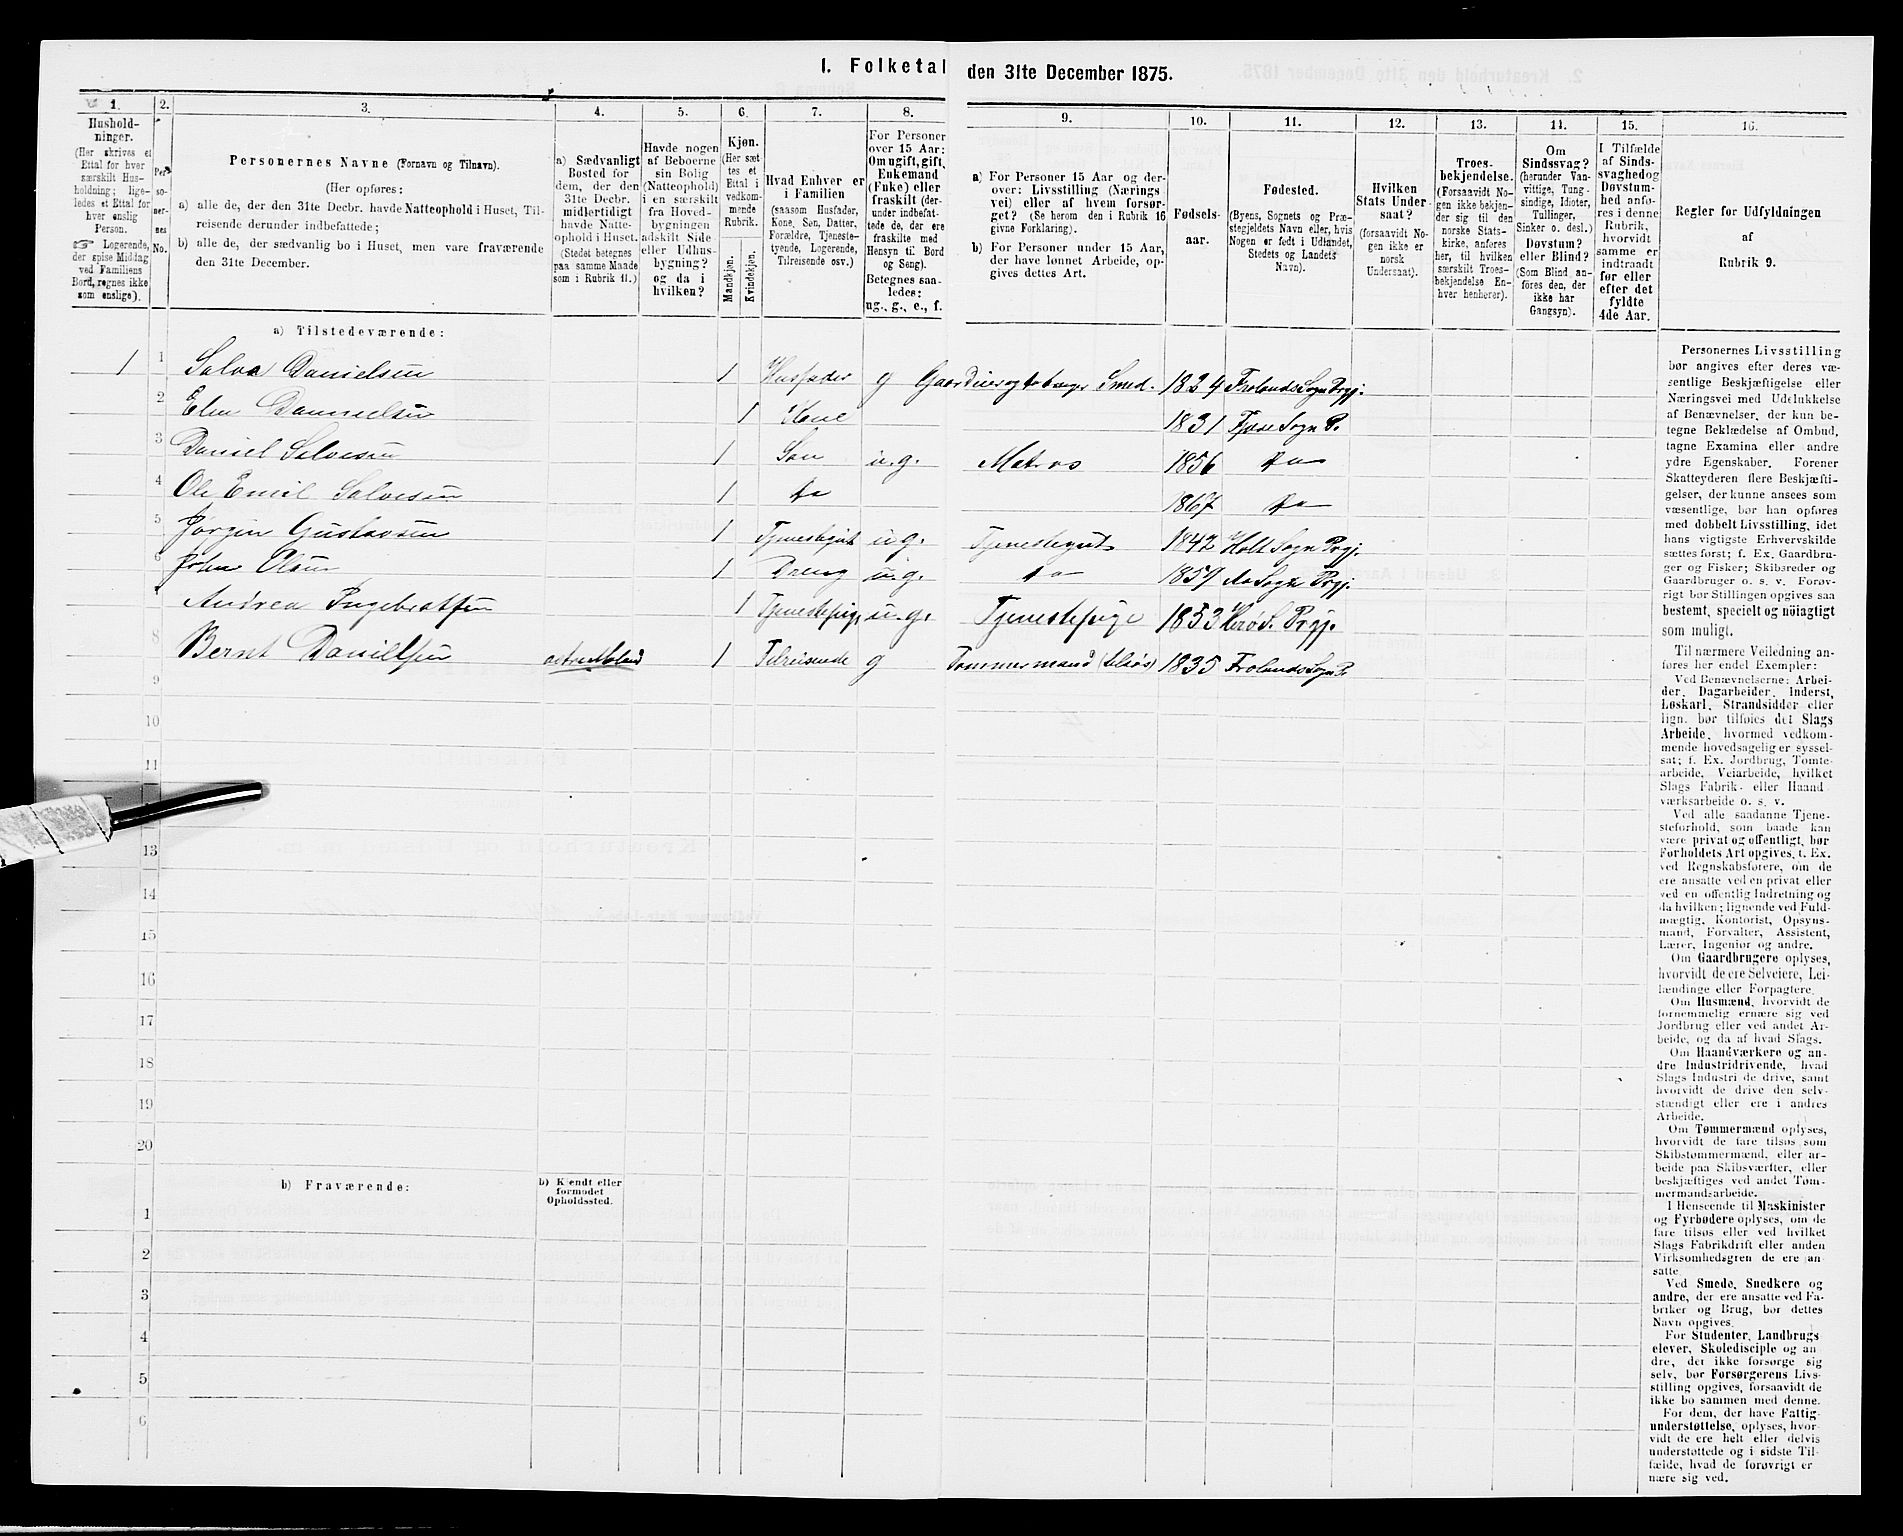 I. Folketal den 31te December 1875.
1. 2. 3. 4. 5. 6. 7. 8. 9. 10. 11. 12. 13. 14. 15. 16.
Hushold-
ninger.
(Her skrives et
Ettal for hver
særskilt Hus-
holdning; lige-
ledes et Ettal for
hver enslig
Person.
☞ Logerende,
der spise Middag
ved Familiens
Bord, regnes ikke
som enslige).
Per-
so-
ner-
nes
No.
Personernes Navne (Fornavn og Tilnavn).
(Her opføres:
a) alle de, der den 31te Decbr. havde Natteophold i Huset, Til-
reisende derunder indbefattede;
b) alle de, der sædvanlig bo i Huset, men vare fraværende
den 31te December.
a) Sædvanligt
Bosted for
dem, der den
31te Decbr.
midlertidigt
havde Natte-
ophold i Huset.
(Stedet betegnes
paa samme Maade
som i Rubrik 11.)
Havde nogen
af Beboerne
sin Bolig
(Natteophold)
i en særskilt
fra Hoved-
bygningen
adskilt Side-
eller Udhus-
bygning?
og da i
hvilken?
Kjøn.
(Her sæt-
tes et
Ettal i
vedkom-
mende
Rubrik.
Mandkjøn.
Kvindekjøn.
Hvad Enhver er
i Familien
(saasom Husfader,
Kone, Søn, Datter,
Forældre, Tjeneste-
tyende, Logerende,
Tilreisende osv.)
For Personer
over 15 Aar:
Om ugift, gift,
Enkemand
(Enke) eller
fraskilt (der-
under indbefat-
tede de, der ere
fraskilte med
Hensyn til Bord
og Seng).
Betegnes saa-
ledes:
ug., g., e., f.
a) For Personer 15 Aar og der-
over: Livsstilling (Nærings-
vei) eller af hvem forsør-
get? (Se herom den i Rubrik 16
givne Forklaring).
b) For Personer under 15 Aar,
der have lønnet Arbeide, op-
gives dettes Art.
Fødsels-
aar.
Fødested.
(Byens, Sognets og Præ-
stegjeldets Navn eller, hvis
Nogen er født i Udlandet,
Stedets og Landets
Navn).
Hvilken
Stats Under-
saat?
(forsaavidt No-
gen ikke er
norsk
Undersaat).
Troes-
bekjendelse.
(Forsaavidt No-
gen ikke bekjen-
der sig til den
norske Stats-
kirke, anføres
her, til hvilken
særskilt Troes-
bekjendelse En-
hver henhører).
Om
Sindssvag?
(herunder Van-
vittige, Tung-
sindige, Idioter,
Tullinger,
Sinker o. desl.)
Døvstum?
eller Blind?
(Som Blind an-
føres den, der
ikke har
Gangsyn).
I Tilfælde
af Sinds-
svaghed og
Døvstum-
hed anfø-
res i denne
Rubrik,
hvorvidt
samme er
indtraadt
før eller
efter det
fyldte
4de Aar.
Regler for Udfyldningen
af
Rubrik 9.
a) Tilstedeværende:
1 1 Salve Danielsen 1 Husfader g Gaardeier og Smed. 1824 Frolands Sogn Prgj:
2 Elen Danielsen 1 Kone 1831 Sogn P.
3 Daniel Salvesen 1 Søn u.g. Matros 1856 do
4 Ole Emil Salvesen 1 do 1867 do
5 Jørgen Gustavsen 1 Tjenestegut u.g. Tjenestegut 1842 Holt Sogn Prgj.
6 John Olsen 1 Dreng u.g. do 1859 Sogn Prgj.
7 Andrea Ingebretsen 1 Tjenestepige u.g. Tjenestepige 1853 S. Prgj.
8 Bernt Daniellsen 1 Tilreisende g Tømmermand (tilsøs) 1835 Frolands Sogn P.
9
10
11
13
14
15
16
17
18
19
20
b) Fraværende:
b) Kjendt eller
formodet
Opholdssted.
1
2
3
3
4
5
6
Personernes Livsstilling
bør angives efter deres væ-
sentlige Beskjæftigelse eller
Næringsvei med Udelukkelse
af Benævnelser, der kun be-
tegne Beklædelse af Ombud,
tagne Examina eller andre
ydre Egenskaber. Forener
Skatteyderen flere Beskjæfti-
gelser, der kunne ansees som
væsentlige, bør han opføres
med dobbelt Livsstilling, idet
hans vigtigste Erhvervskilde
sættes først; f. Ex. Gaardbru-
ger og Fisker; Skibsreder og
Gaardbruger o. s. v. Forøv-
rigt bør Stillingen opgives saa
bestemt, specielt og nøiagtigt
som muligt.
Til nærmere Veiledning an-
føres her endel Exempler:
Ved Benævnelserne: Arbei-
der, Dagarbeider, Inderst,
Løskarl, Strandsidder eller
lign. bør tilføies det Slags
Arbeide, hvormed vedkom-
mende hovedsagelig er syssel-
sat; f. Ex. Jordbrug, Tomte-
arbeide, Veiarbeide, hvilket
Slags Fabrik- eller Haand-
værksarbeide o. s. v.
Ved alle saadanne Tjene-
steforhold, som baade kan
være privat og offentligt, bør
Forholdets Art opgives, t. Ex.
ved Regnskabsførere, om de
ere ansatte ved en privat eller
ved en offentlig Indretning og
da hvilken; lignende ved Fuld-
mægtig, Kontorist, Opsyns-
mand, Forvalter, Assistent,
Lærer, Ingeniør og andre.
Om Gaardbrugere oplyses,
hvorvidt de ere Selveiere, Lei-
lændinge eller Forpagtere.
Om Husmænd, hvorvidt de
fornemmelig ernære sig ved
Jordbrug eller ved andet Ar-
beide, og da af hvad Slags.
Om Haandværkere og an-
dre Industridrivende, hvad
Slags Industri de drive, samt
hvorvidt de drive den selv-
stændigt eller ere i andres
Arbeide.
Om Tømmermænd oplyses,
hvorvidt de fare tilsøs som
Skibstømmermænd, eller ar-
beide paa Skibsværfter, eller
beskjæftiges ved andet Tøm-
mermandsarbeide.
I Henseende til Maskinister
og Fyrbødere oplyses, om de
fare tilsøs eller ved hvilket
Slags Fabrikdrift eller anden
Virksomhedsgren de ere an-
satte.
Ved Smede, Snedkere og
andre, der ere ansatte ved Fa-
briker og Brug, bør dettes
Navn opgives.
For Studenter, Landbrugs
elever, Skoledisciple og an
dre, der ikke forsørge sig
selv, bør Forsørgerens Livs-
stilling opgives, forsaavidt de
ikke bo sammen med denne.
For dem, der have Fattig-
understøttelse, oplyses, hvor-
vidt de ere helt eller delvis
understøttede og i sidste Til-
fælde, hvad de forøvrigt er
nære sig ved.